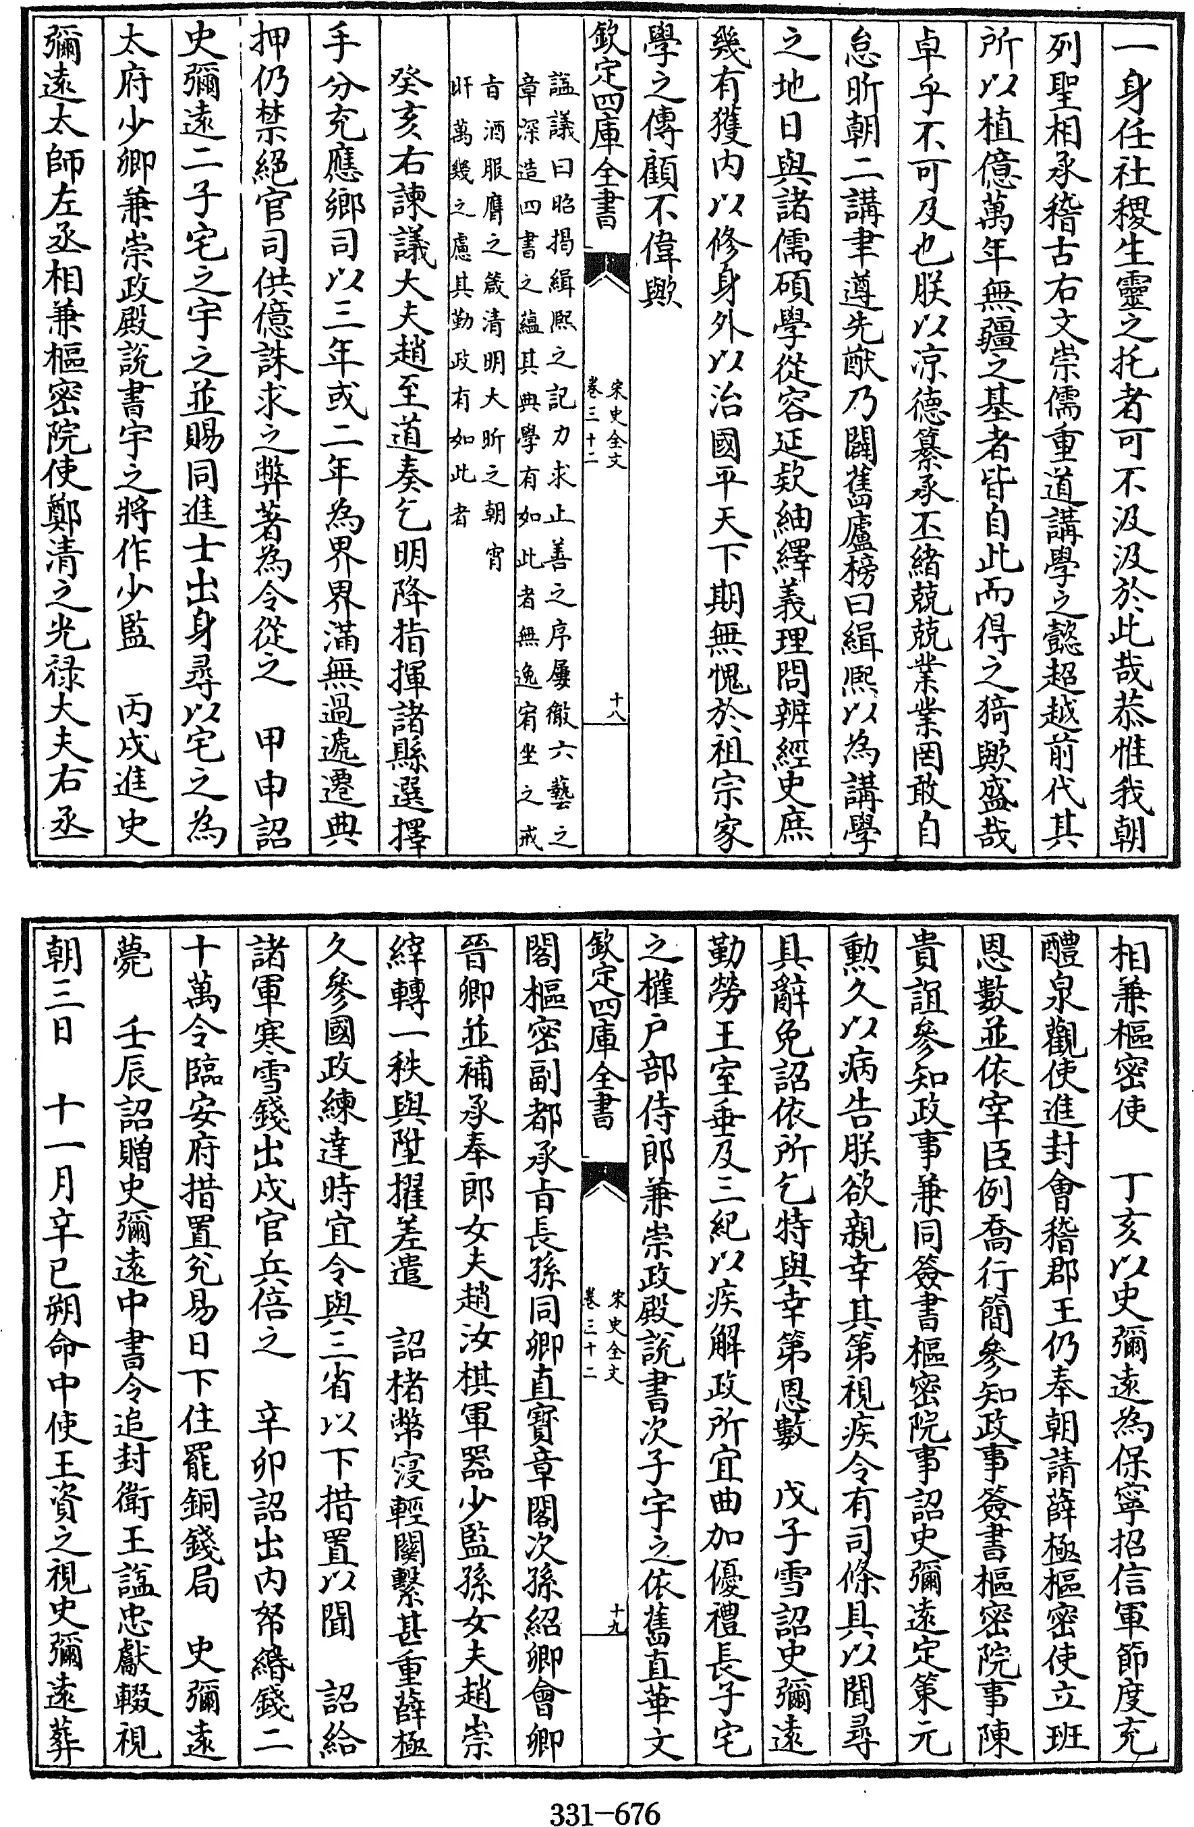 一身任社稷生靈之托者可不汲汲於此哉恭惟我朝
列聖相承稽古右文崇儒重道講學之懿超越前代其
所以植億萬年無疆之基者皆自此而得之猗歟盛哉
卓乎不可及也朕以凉德纂承丕緒兢兢業業罔敢自
怠昕朝二講聿遵先猷乃闢舊廬榜曰緝熙以為講學
之地日與諸儒碩學從容延欵紬繹義理問辨經史庶
幾有獲内以修身外以治國平天下期無愧於祖宗家
學之傳顧不偉歟
欽定四庫全書
宋史全文
卷三十二
十八
謚議曰昭揭緝熙之記力求止善之序屢徹六藝之
章深造四書之藴其典學有如此者無逸宥坐之戒
旨酒服膺之箴清明大昕之朝宵
旰萬幾之慮其勤政有如此者
癸亥右諫議大夫趙至道奏乞明降指揮諸縣選擇
手分充應鄉司以三年或二年為界界滿無過遞遷典
押仍禁絕官司供億誅求之弊著為令從之　甲申詔
史彌遠二子宅之宇之並賜同進士出身尋以宅之為
太府少卿兼崇政殿説書宇之將作少監　丙戌進史
彌遠太師左丞相兼樞密院使鄭清之光禄大夫右丞
相兼樞密使　丁亥以史彌遠為保寧招信軍節度充
醴泉觀使進封會稽郡王仍奉朝請薛極樞密使立班
恩數並依宰臣例喬行簡參知政事簽書樞密院事陳
貴誼參知政事兼同簽書樞密院事詔史彌遠定策元
勲久以病告朕欲親幸其第視疾令有司條具以聞尋
具辭免詔依所乞特與幸第恩數　戊子雪詔史彌遠
勤勞王室垂及三紀以疾解政所宜曲加優禮長子宅
之權戸部侍郎兼崇政殿説書次子宇之依舊直華文
欽定四庫全書
宋史全文
卷三十二
十九
閣樞密副都承旨長孫同卿直寶章閣次孫紹卿會卿
晉卿並補承奉郎女夫趙汝棋軍器少監孫女夫趙崇
䋲轉一秩與陞擢差遣　詔楮幣寖輕關繫甚重薛極
久參國政練達時宜令與三省以下措置以聞　詔給
諸軍寒雪錢出戍官兵倍之　辛卯詔出内帑緡錢二
十萬令臨安府措置兊易日下住罷銅錢局　史彌遠
薨　壬辰詔贈史彌遠中書令追封衛王諡忠獻輟視
朝三日　十一月辛巳朔命中使王資之視史彌遠葬
331-676